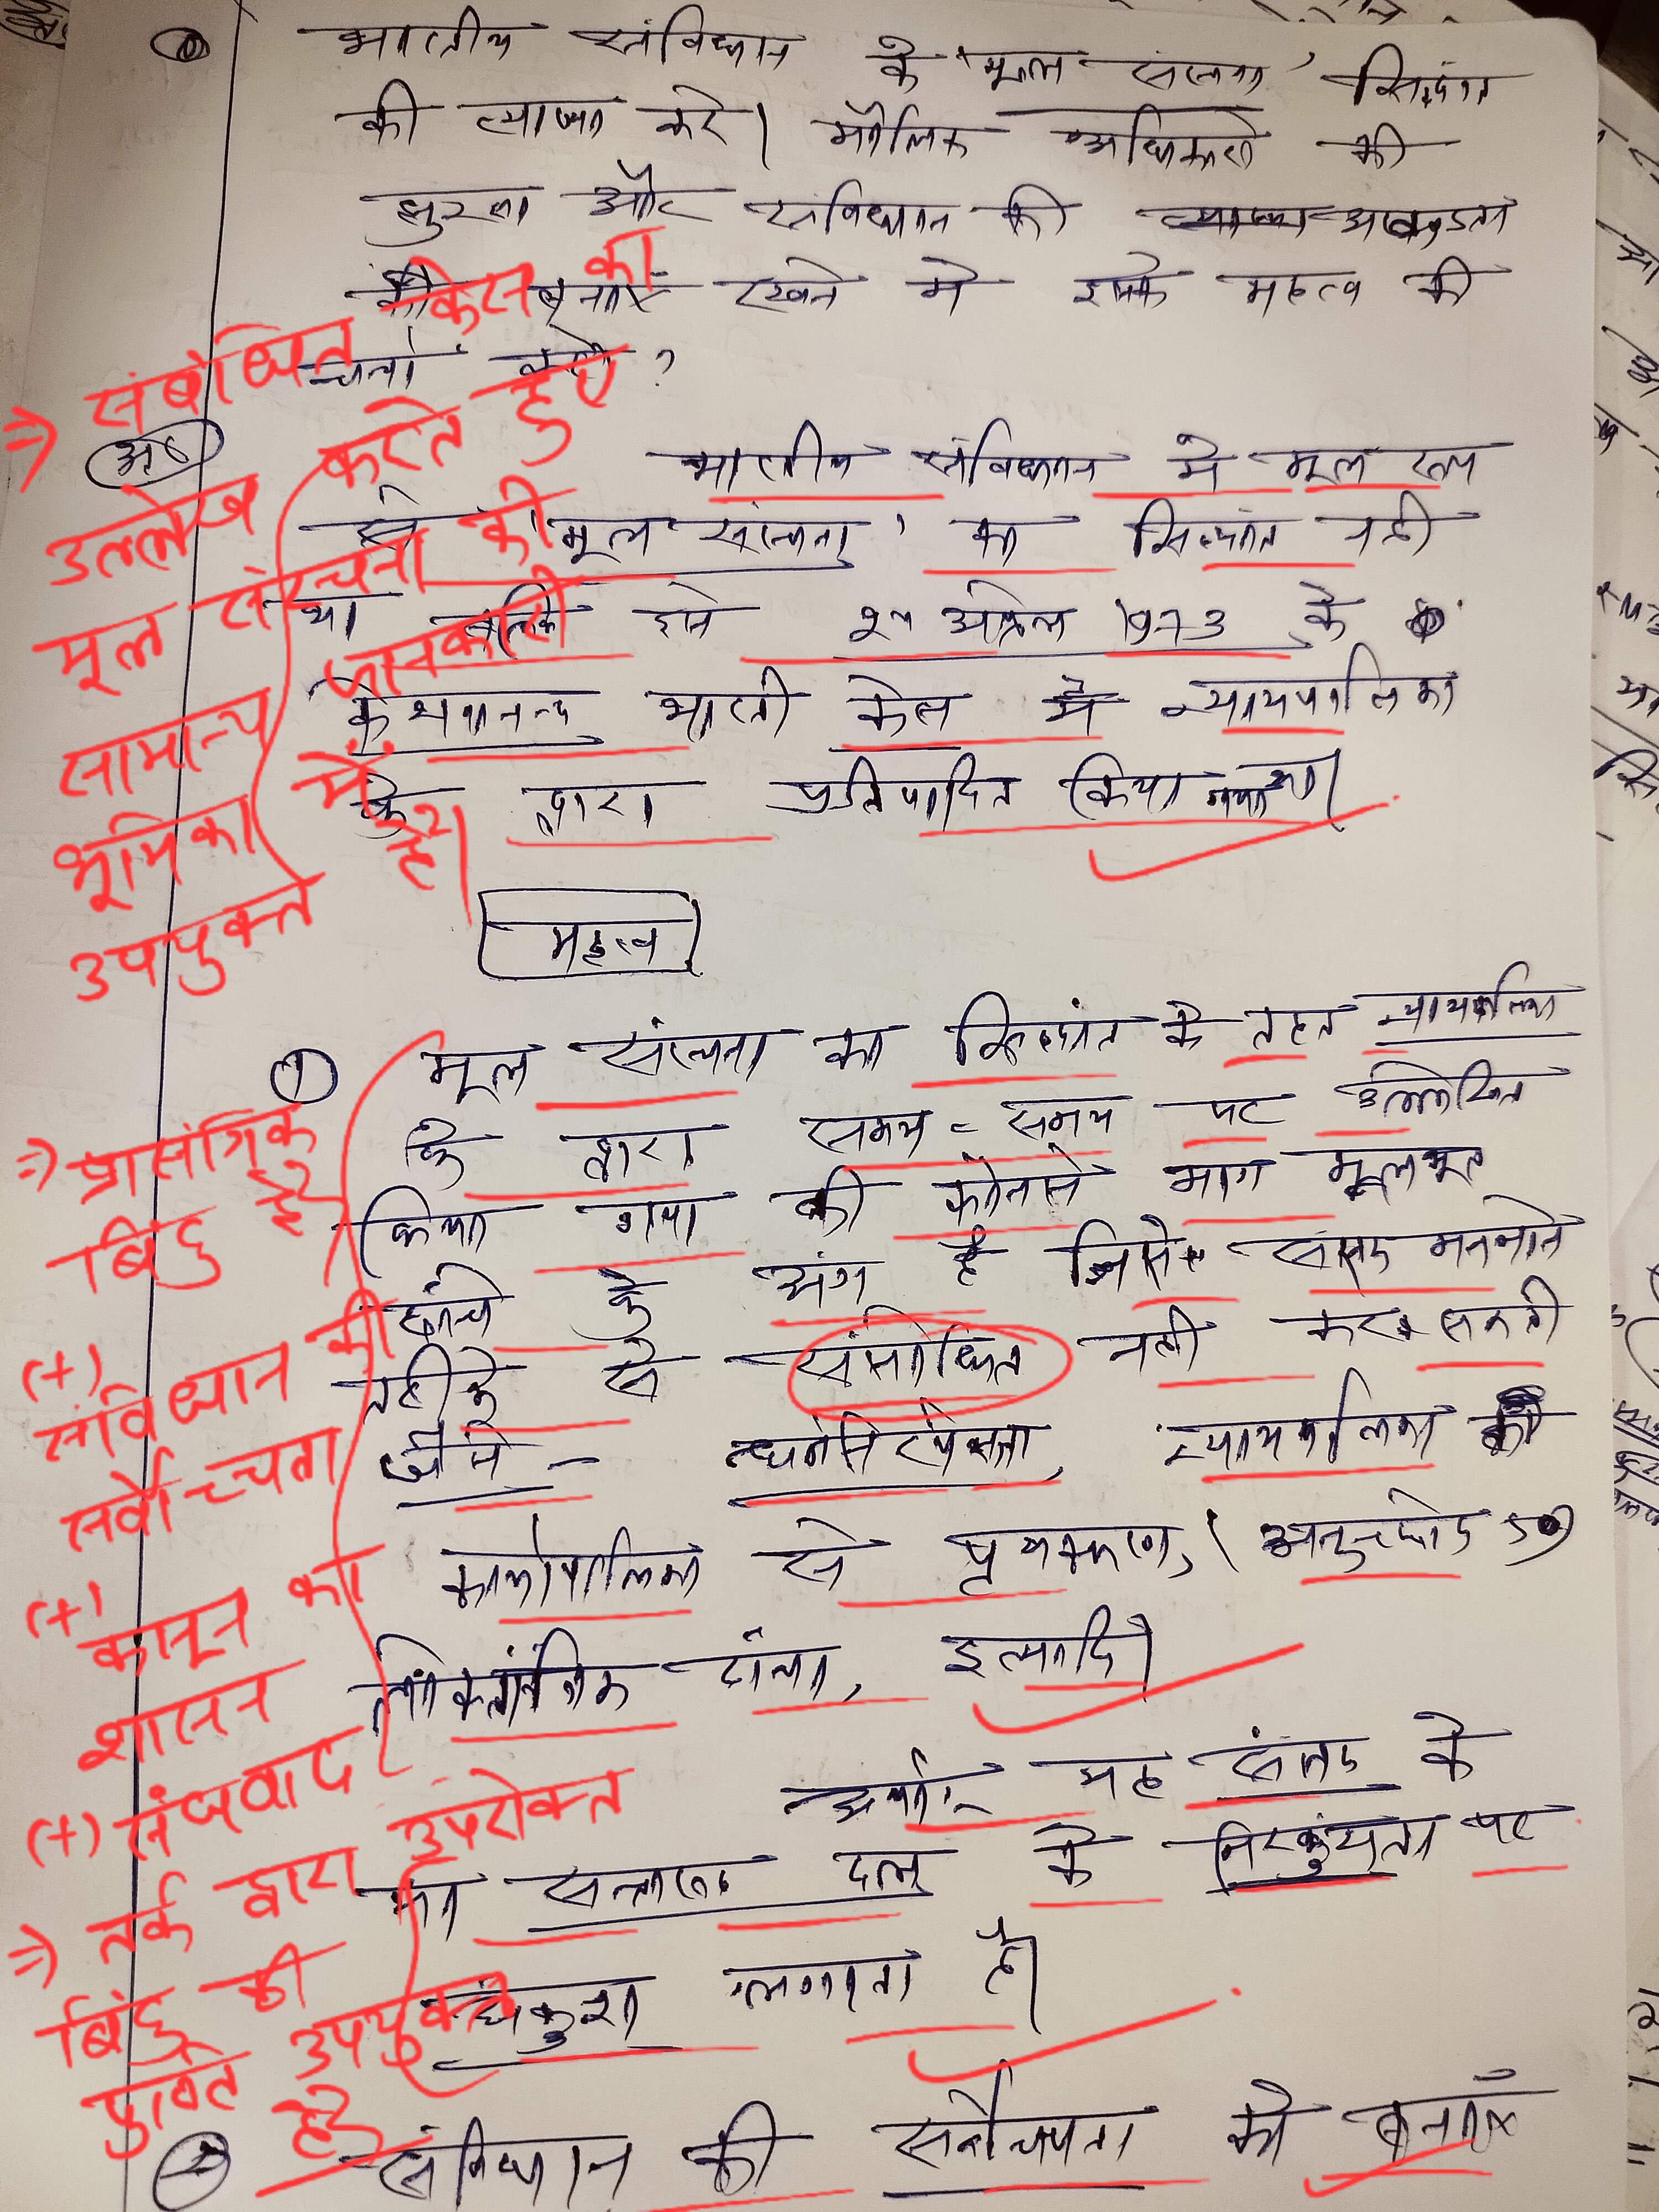 भारतीय संविधान के 'मूल संरचना' सिद्धांत
की व्याख्या करे। मौलिक अधिकारो की
सुरक्षा और संविधान की अखण्डता
को बनाए रखने मे इसके महत्व की
चर्चा करो?
उत्तर
भारतीय संविधान मे मूल रूप
से 'मूल संरचना' का सिद्धांत नही
था बल्कि इसे 24 अप्रैल 1973 के
केशवानन्द भारती केस मे न्यायपालिका
के द्वारा प्रतिपादित किया गया था।
⇒ संबंधित केस का
उल्लेख करते हुए
मूल संरचना की
सामान्य जानकारी
भूमिका में
उपयुक्त है।
महत्व
① मूल संरचना का सिद्धांत के तहत न्यायपालिका
के द्वारा समय-समय पर उल्लेखित
किया गया की कौनसे भाग मूलभूत
ढांचे के अंग है जिसे संसद मनमाने
तरीके से संसोधित नही कर सकती
जैसे - धर्मनिरपेक्षता, न्यायपालिका की
कार्यपालिका से पृथक्करण, (अनुच्छेद 50)
लोकतांत्रिक ढांचा, इत्यादि।
⇒ प्रासंगिक
बिंदु है
(+)
संविधान की
सर्वोच्चता
(+)
कानून का
शासन
(+) संघवाद
अर्थात् यह संसद के
या सत्तारूढ़ दल के निरकुंशता पर
अंकुश लगाता है।
⇒ तर्क द्वारा उपरोक्त
बिंदु की
पुष्टि उपयुक्त
है
② संविधान की सर्वोच्चता को बनाएँ